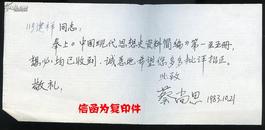 泽梓同志:
奉上《中国现代思想史资料简编》第一至五册,
想必均已收到,诚恳地希望你多多批评指正。
此致
敬礼,
蔡尚思
1983.10.21
信函为复印件